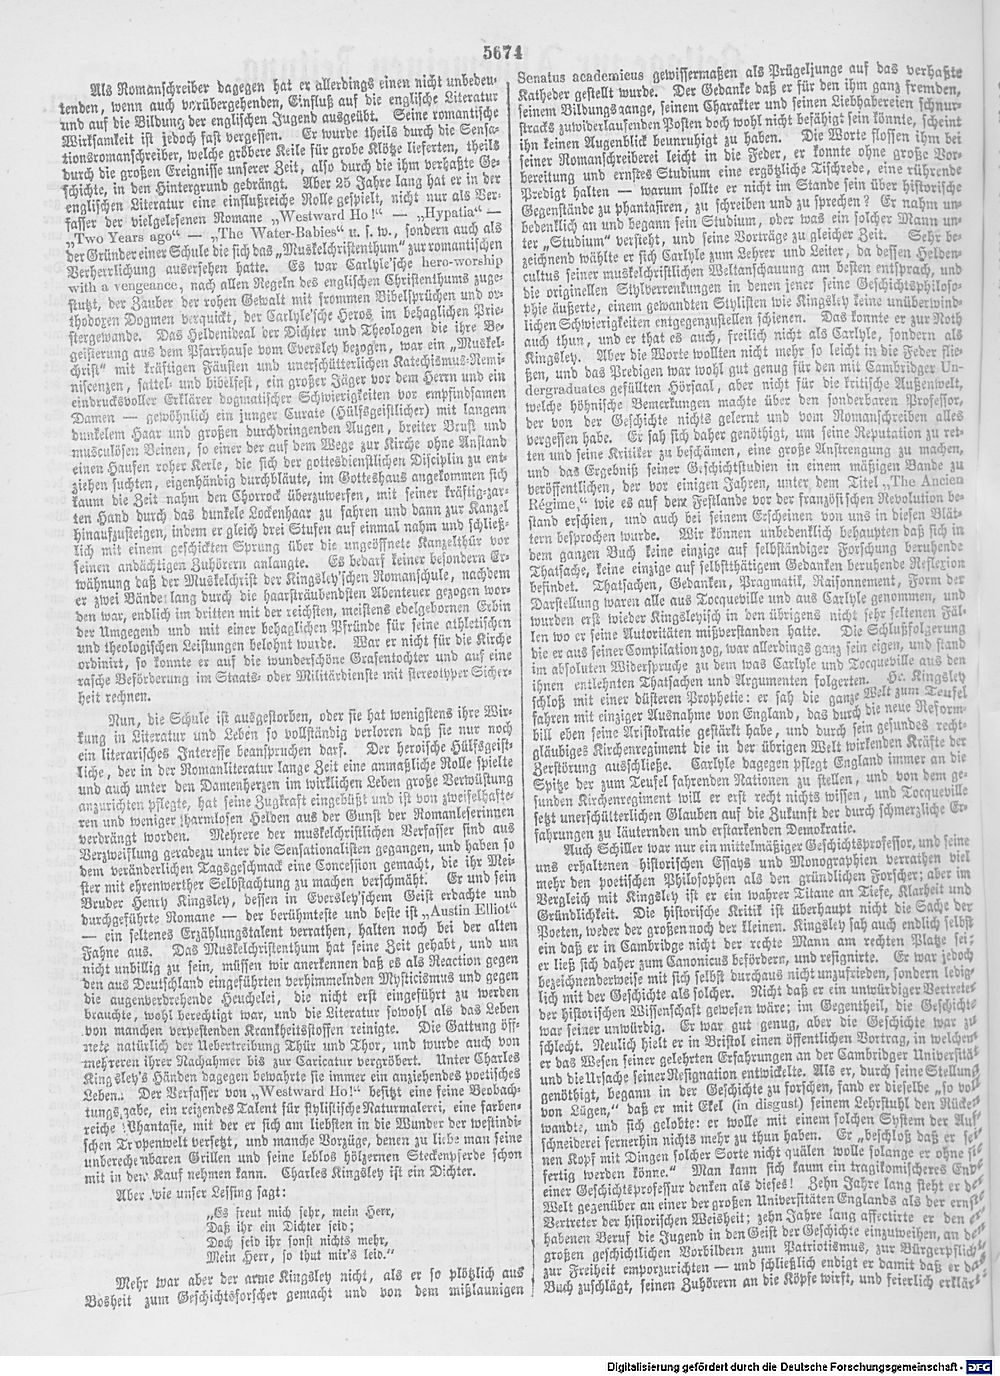 5674
Als Romanschreiber dagegen hat er allerdings einen nicht unbedeu-
tenden, wenn auch vorübergehenden, Einfluß auf die englische Literatur
und auf die Bildung der englischen Jugend ausgeübt. Seine romantische
Wirksamkeit ist jedoch fast vergessen. Er wurde theils durch die Sensa-
tionsromanschreiber, welche gröbere Keile für grobe Klötze lieferten, theils
durch die großen Ereignisse unserer Zeit, also durch die ihm verhaßte Ge-
schichte, in den Hintergrund gedrängt. Aber 25 Jahre lang hat er in der
englischen Literatur eine einflußreiche Rolle gespielt, nicht nur als Ver-
fasser der vielgelesenen Romane „Westward Ho!“ — „Hypatia“ —
„Two Years ago“ — „The Water-Babies“ u. s. w., sondern auch als
der Gründer einer Schule die sich das „Muskelchristenthum“ zur romantischen
Verherrlichung ausersehen hatte. Es war Carlyle'sche hero-worship
with a vengeance, nach allen Regeln des englischen Christenthums zuge-
stutzt, der Zauber der rohen Gewalt mit frommen Bibelsprüchen und or-
thodoxen Dogmen verquickt, der Carlyle'sche Heros im behaglichen Prie-
stergewande. Das Heldenideal der Dichter und Theologen die ihre Be-
geisterung aus dem Pfarrhause vom Eversley bezogen, war ein „Muskel-
christ“ mit kräftigen Fäusten und unerschütterlichen Katechismus-Remi-
niscenzen, sattel- und bibelfest, ein großer Jäger vor dem Herrn und ein
eindrucksvoller Erklärer dogmatischer Schwierigkeiten vor empfindsamen
Damen — gewöhnlich ein junger Curate (Hülfsgeistlicher) mit langem
dunkelem Haar und großen durchdringenden Augen, breiter Brust und
musculösen Beinen, so einer der auf dem Wege zur Kirche ohne Anstand
einen Haufen roher Kerle, die sich der gottesdienstlichen Disciplin zu ent-
ziehen suchten, eigenhändig durchbläute, im Gotteshaus angekommen sich
kaum die Zeit nahm den Chorrock überzuwerfen, mit seiner kräftig-zar-
ten Hand durch das dunkle Lockenhaar zu fahren und dann zur Kanzel
hinaufzusteigen, indem er gleich drei Stufen auf einmal nahm und schließ-
lich mit einem geschickten Sprung über die ungeöffnete Kanzelthür vor
seinen andächtigen Zuhörern anlangte. Es bedarf keiner besondern Er-
wähnung daß der Muskelchrist der Kingsley'schen Romanschule, nachdem
er zwei Bände lang durch die haarsträubendsten Abenteuer gezogen wor-
den war, endlich im dritten mit der reichsten, meistens edelgebornen Erbin
der Umgegend und mit einer behaglichen Pfründe für seine athletischen
und theologischen Leistungen belohnt wurde. War er nicht für die Kirche
ordinirt, so konnte er auf die wunderschöne Grafentochter und auf eine
rasche Beförderung im Staats- oder Militärdienste mit stereotyper Sicher-
heit rechnen.
Nun, die Schule ist ausgestorben, oder sie hat wenigstens ihre Wir-
kung in Literatur und Leben so vollständig verloren daß sie nur noch
ein literarisches Interesse beanspruchen darf. Der heroische Hülfsgeist-
liche, der in der Romanliteratur lange Zeit eine anmaßliche Rolle spielte
und auch unter den Damenherzen im wirklichen Leben große Verwüstung
anzurichten pflegte, hat seine Zugkraft eingebüßt und ist von zweifelhafte-
ren und weniger harmlosen Helden aus der Gunst der Romanleserinnen
verdrängt worden. Mehrere der muskelchristlichen Verfasser sind aus
Verzweiflung geradezu unter die Sensationalisten gegangen, und haben so
dem veränderlichen Tagsgeschmack eine Concession gemacht, die ihr Mei-
ster mit ehrenwerther Selbstachtung zu machen verschmäht. Er und sein
Bruder Henry Kingsley, dessen in Eversley'schem Geist erdachte und
durchgeführte Romane — der berühmteste und beste ist „Austin Elliot“
— ein seltenes Erzählungstalent verrathen, halten noch bei der alten
Fahne aus. Das Muskelchristenthum hat seine Zeit gehabt, und um
nicht unbillig zu sein, müssen wir anerkennen daß es als Reaction gegen
den aus Deutschland eingeführten verhimmelnden Mysticismus und gegen
die augenverdrehende Heuchelei, die nicht erst eingeführt zu werden
brauchte, wohl berechtigt war, und die Literatur sowohl als das Leben
von manchen verpestenden Krankheitsstoffen reinigte. Die Gattung öff-
nete natürlich der Uebertreibung Thür und Thor, und wurde auch von
mehreren ihrer Nachahmer bis zur Caricatur vergröbert. Unter Charles
Kingsley's Händen dagegen bewahrte sie immer ein anziehendes poetisches
Leben. Der Verfasser von „Westward Ho!“ besitzt eine feine Beobach-
tungsgabe, ein reizendes Talent für stylistische Naturmalerei, eine farben-
reiche Phantasie, mit der er sich am liebsten in die Wunder der westindi-
schen Tropenwelt versetzt, und manche Vorzüge, denen zu liebe man seine
unberechenbaren Grillen und seine leblos hölzernen Steckenpferde schon
mit in den Kauf nehmen kann. Charles Kingsley ist ein Dichter.
Aber wie unser Lessing sagt:
„Es freut mich sehr, mein Herr,
Daß ihr ein Dichter seid;
Doch seid ihr sonst nichts mehr,
Mein Herr, so thut mir's leid.“
Mehr war aber der arme Kingsley nicht, als er so plötzlich aus
Bosheit zum Geschichtsforscher gemacht und von dem mißlaunigen
Senatus academicus gewissermaßen als Prügeljunge auf das verhaßte
Katheder gestellt wurde. Der Gedanke daß er für den ihm ganz fremden,
seinem Bildungsgange, seinem Charakter und seinen Liebhabereien schnur-
stracks zuwiderlaufenden Posten doch wohl nicht befähigt sein könnte, scheint
ihn keinen Augenblick beunruhigt zu haben. Die Worte flossen ihm bei
seiner Romanschreiberei leicht in die Feder, er konnte ohne große Vor-
bereitung und ernstes Studium eine ergötzliche Tischrede, eine rührende
Predigt halten — warum sollte er nicht im Stande sein über historische
Gegenstände zu phantasiren, zu schreiben und zu sprechen? Er nahm un-
bedenklich an und begann sein Studium, oder was ein solcher Mann un-
ter „Studium“ versteht, und seine Vorträge zu gleicher Zeit. Sehr be-
zeichnend wählte er sich Carlyle zum Lehrer und Leiter, da dessen Helden-
cultus seiner muskelchristlichen Weltanschauung am besten entsprach, und
die originellen Stylverrenkungen in denen jener seine Geschichtsphiloso-
phie äußerte, einem gewandten Stylisten wie Kingsley keine unüberwind-
lichen Schwierigkeiten entgegenzustellen schienen. Das konnte er zur Noth
auch thun, und er that es auch, freilich nicht als Carlyle, sondern als
Kingsley. Aber die Worte wollten nicht mehr so leicht in die Feder flie-
ßen, und das Predigen war wohl gut genug für den mit Cambridger Un-
dergraduates gefüllten Hörsaal, aber nicht für die kritische Außenwelt,
welche höhnische Bemerkungen machte über den sonderbaren Professor,
der von der Geschichte nichts gelernt und vom Romanschreiben alles
vergessen habe. Er sah sich daher genöthigt, um seine Reputation zu ret-
ten und seine Kritiker zu beschämen, eine große Anstrengung zu machen,
und das Ergebniß seiner Geschichtstudien in einem mäßigen Bande zu
veröffentlichen, der vor einigen Jahren, unter dem Titel „The Ancien
Régime,“ wie es auf dem Festlande vor der französischen Revolution be-
stand erschien, und auch bei seinem Erscheinen von uns in diesen Blät-
tern besprochen wurde. Wir können unbedenklich behaupten daß sich in
dem ganzen Buch keine einzige auf selbständiger Forschung beruhende
Thatsache, keine einzige auf selbstthätigem Gedanken beruhende Reflexion
befindet. Thatsachen, Gedanken, Pragmatik, Raisonnement, Form der
Darstellung waren alle aus Tocqueville und aus Carlyle genommen, und
wurden erst wieder Kingsleyisch in den übrigens nicht sehr seltenen Fäl-
len wo er seine Autoritäten mißverstanden hatte. Die Schlußfolgerung
die er aus seiner Compilation zog, war allerdings ganz sein eigen, und stand
im absoluten Widerspruche zu dem was Carlyle und Tocqueville aus den
ihnen entlehnten Thatsachen und Argumenten folgerten. Hr. Kingsley
schloß mit einer düsteren Prophetie: er sah die ganze Welt zum Teufel
fahren mit einziger Ausnahme von England, das durch die neue Reform-
bill eben seine Aristokratie gestärkt habe, und durch sein gesundes recht-
gläubiges Kirchenregiment die in der übrigen Welt wirkenden Kräfte der
Zerstörung ausschließe. Carlyle dagegen pflegt England immer an die
Spitze der zum Teufel fahrenden Nationen zu stellen, und von dem ge-
sunden Kirchenregiment will er erst recht nichts wissen, und Tocqueville
setzt unerschütterlichen Glauben auf die Zukunft der durch schmerzliche Er-
fahrungen zu läuternden und erstarkenden Demokratie.
Auch Schiller war nur ein mittelmäßiger Geschichtsprofessor, und seine
uns erhaltenen historischen Essays und Monographien verrathen viel
mehr den poetischen Philosophen als den gründlichen Forscher; aber im
Vergleich mit Kingsley ist er ein wahrer Titane an Tiefe, Klarheit und
Gründlichkeit. Die historische Kritik ist überhaupt nicht die Sache der
Poeten, weder der großen noch der kleinen. Kingsley sah auch endlich selbst
ein daß er in Cambridge nicht der rechte Mann am rechten Platze sei;
er ließ sich daher zum Canonicus befördern, und resignirte. Er war jedoch
bezeichnenderweise mit sich selbst durchaus nicht unzufrieden, sondern ledig-
lich mit der Geschichte als solcher. Nicht daß er ein unwürdiger Vertreter
der historischen Wissenschaft gewesen wäre; im Gegentheil, die Geschichte
war seiner unwürdig. Er war gut genug, aber die Geschichte war zu
schlecht. Neulich hielt er in Bristol einen öffentlichen Vortrag, in welchem
er das Wesen seiner gelehrten Erfahrungen an der Cambridger Universität
und die Ursache seiner Resignation entwickelte. Als er, durch seine Stellung
genöthigt, begann in der Geschichte zu forschen, fand er dieselbe „so voll
von Lügen,“ daß er mit Ekel (in disgust) seinem Lehrstuhl den Rücken
wandte, und sich gelobte: er wolle mit einem solchen System der Auf-
schneiderei fernerhin nichts mehr zu thun haben. Er „beschloß daß er sei-
nen Kopf mit Dingen solcher Sorte nicht quälen wolle solange er ohne sie
fertig werden könne.“ Man kann sich kaum ein tragikomischeres Ende
einer Geschichtsprofessur denken als dieses! Zehn Jahre lang steht er der
Welt gegenüber an einer der großen Universitäten Englands als der ernste
Vertreter der historischen Weisheit; zehn Jahre lang affectirte er den er-
habenen Beruf die Jugend in den Geist der Geschichte einzuweihen, an den
großen geschichtlichen Vorbildern zum Patriotismus, zur Bürgerpflicht,
zur Freiheit emporzurichten — und schließlich endigt er damit daß er das
Buch zuschlägt, seinen Zuhörern an die Köpfe wirft, und feierlich erklärt:
Digitalisierung gefördert durch die Deutsche Forschungsgemeinschaft - DFG